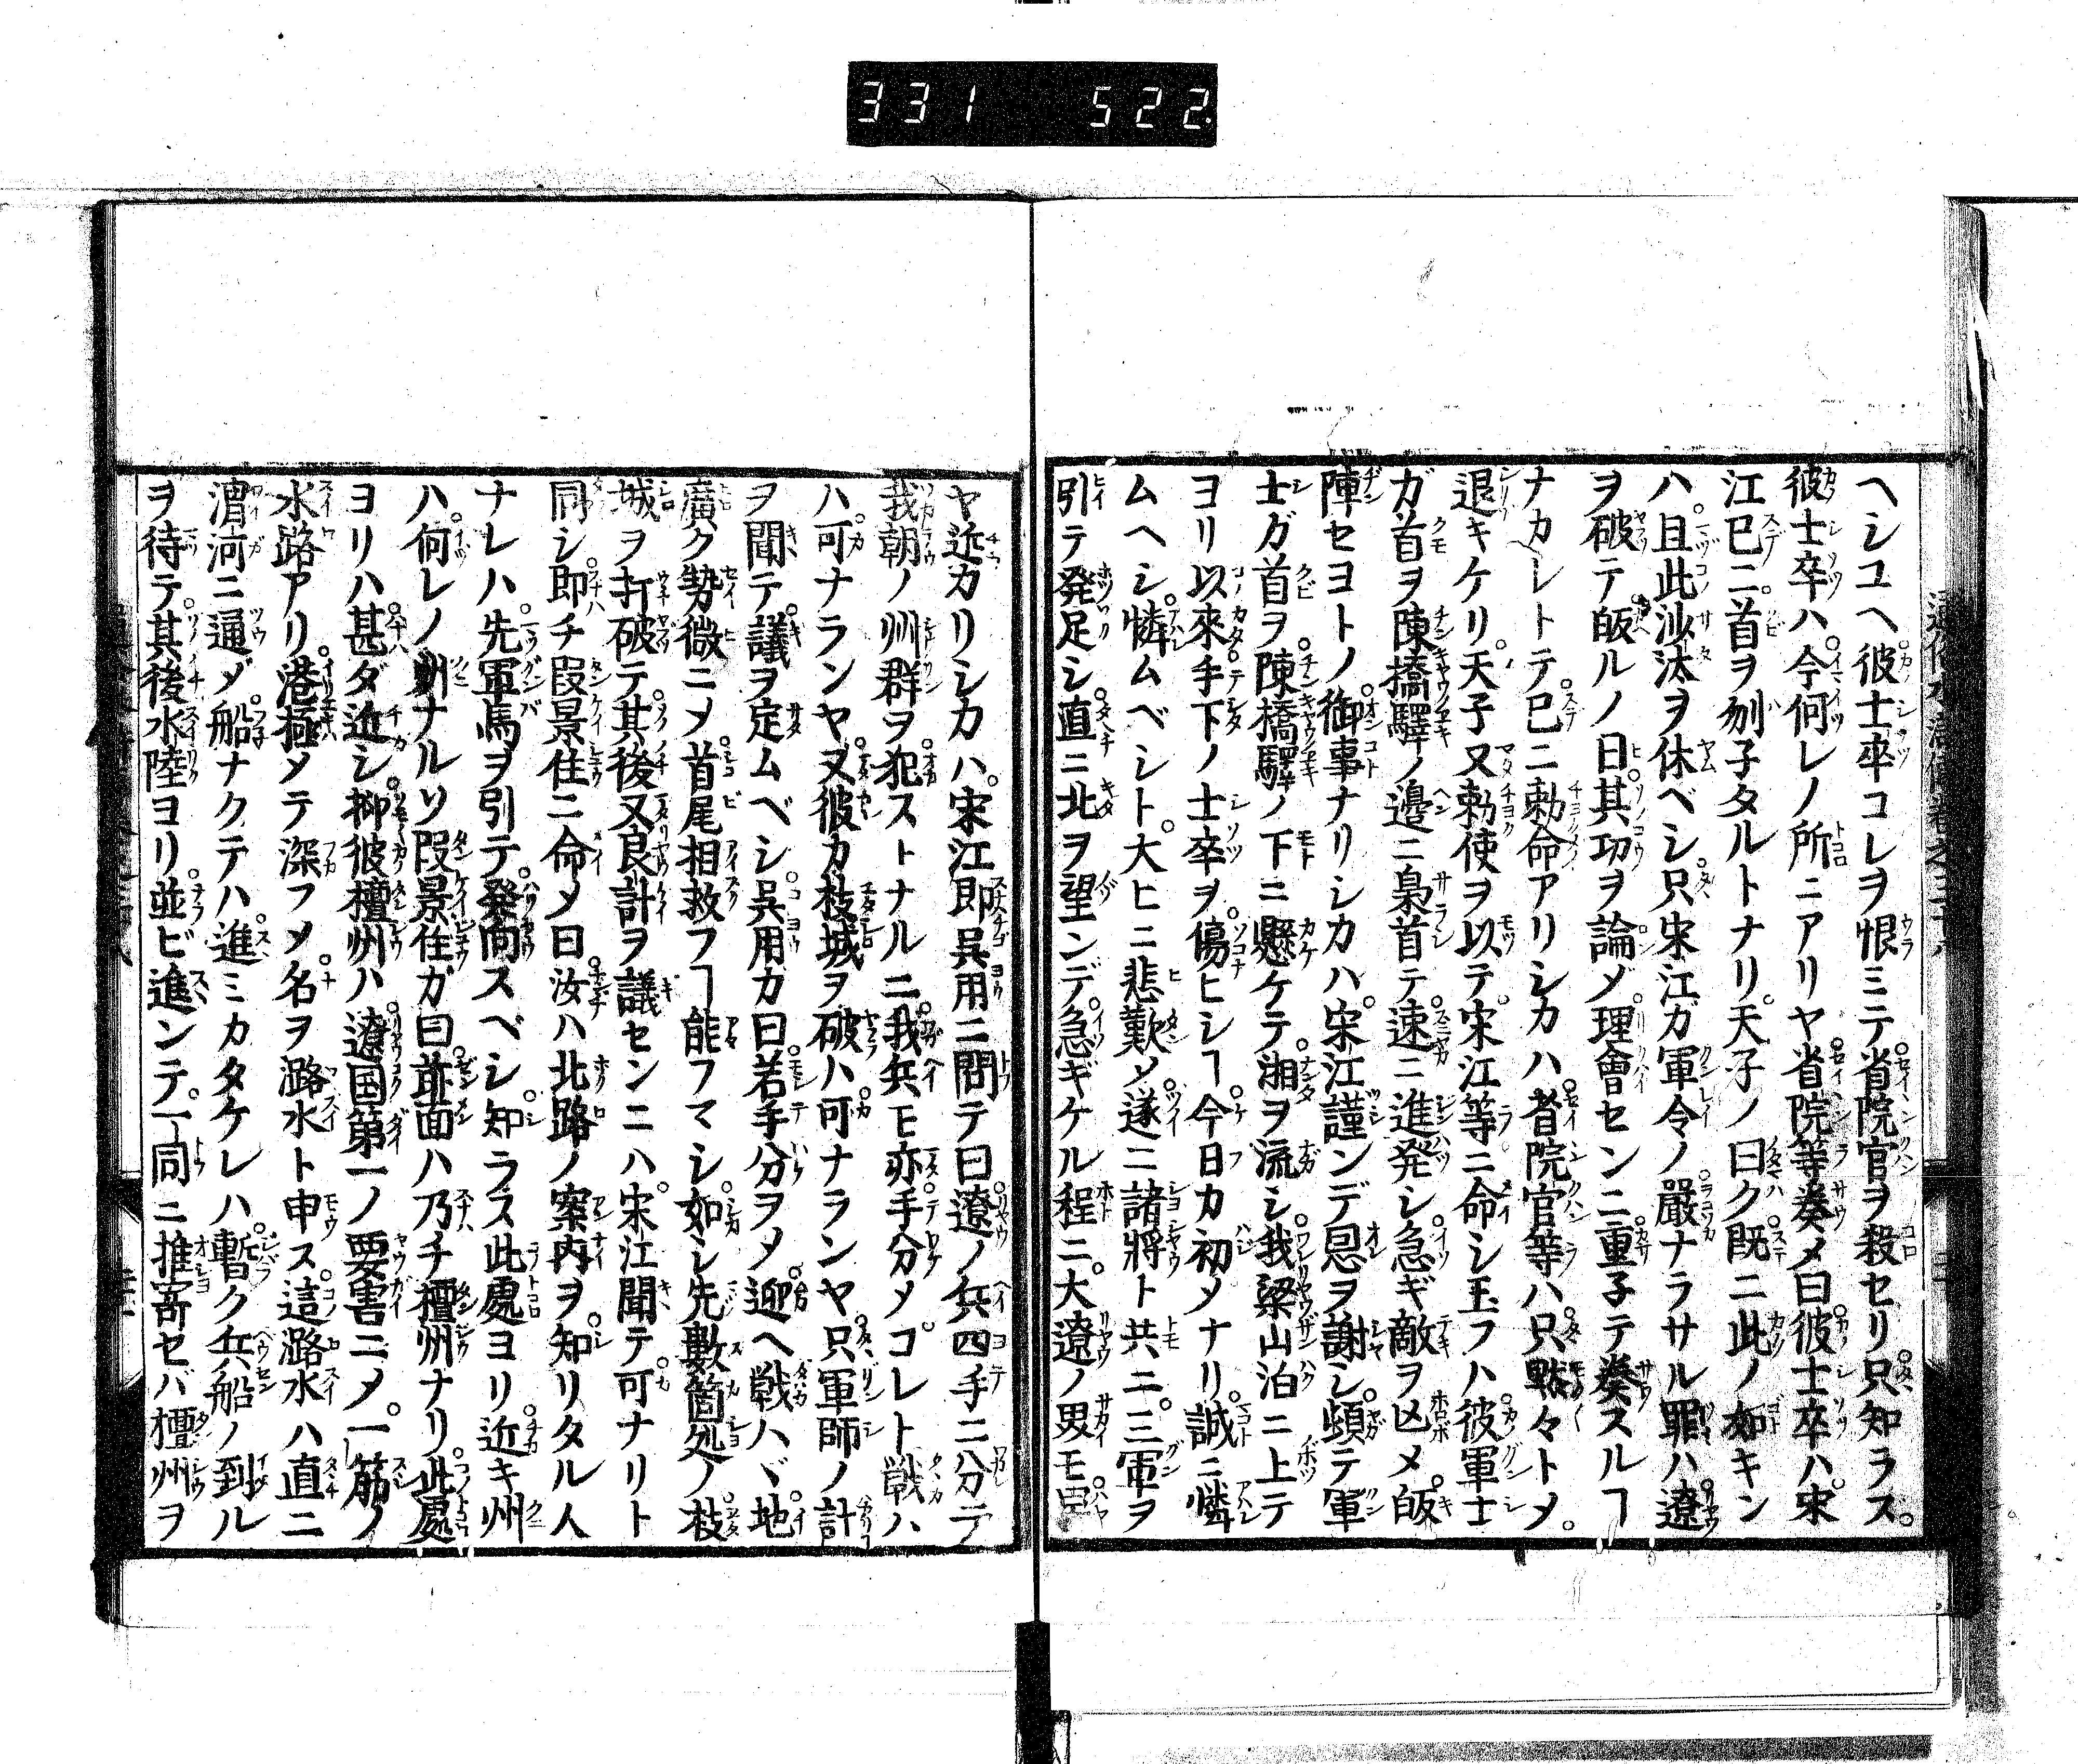 331 522
ヘシユヘ彼士卒コレヲ恨ミテ省院官ヲ殺セリ只知ラス。
彼士卒ハ今何レノ所ニアリヤ省院等奏メ曰彼士卒ハ宋
江已ニ首ヲ刎子タルトナリ天子ノ曰ク既ニ此ノ如キン
ハ且此沙汰ヲ休ベシ只宋江ガ軍令ノ嚴ナラサル罪ハ遼
ヲ破テ皈ルノ日其功ヲ論ゾメ理會センニ重子テ奏スルヿ
ナカレトテ已ニ勅命アリシカハ省院官等ハ只黙々トメ。
退キケリ天子又勅使ヲ以テ宋江等ニ命シ玉フハ彼軍士
ガ首ヲ陳橋驛ノ邊ニ梟首テ速ニ進発シ急ギ敵ヲ亡メ皈
陣セヨトノ御事ナリシカハ宋江謹ンデ恩ヲ謝シ頓テ軍
士ガ首ヲ陳橋驛ノ下ニ懸ケテ湘ヲ流シ我梁山泊ニ上テ
ヨリ以來手下ノ士卒ヲ傷ヒシヿ今日カ初メナリ誠ニ憐
ムヘシ憐ムベシト大ヒニ悲歎メ遂ニ諸將ト共ニ三軍ヲ
引テ発足シ直ニ北ヲ望ンデ急ギケル程ニ大遼ノ界モ早
ヤ近カリシカハ宋江即呉用ニ問テ曰遼ノ兵四手ニ分テ
我朝ノ州群ヲ犯ストナルニ我兵モ亦手分メコレト戦ハ
ハ可ナランヤ又彼カ枝城ヲ破ハ可ナランヤ只軍師ノ計
ヲ聞テ議ヲ定ムベシ呉用カ曰若手分ヲメ迎ヘ戦ハヾ地
廣ク勢微ニメ首尾相救フヿ能フマシ如シ先數箇処ノ枝
城ヲ打破テ其後又良計ヲ議センニハ宋江聞テ可ナリト
同シ即チ段景住ニ命メ曰汝ハ北路ノ案内ヲ知リタル人
ナレハ先軍馬ヲ引テ発向スベシ知ラス此處ヨリ近キ州
ハ何レノ州ナルソ段景住ガ曰前面ハ乃チ檀州ナリ此處
ヨリハ甚ダ近シ抑彼檀州ハ遼国第一ノ要害ニメ一筋ノ
水路アリ港極メテ深フメ名ヲ潞水ト申ス這潞水ハ直ニ
渭河ニ通ゾメ船ナクテハ進ミカタケレハ暫ク兵船ノ到ル
ヲ待テ其後水陸ヨリ並ビ進ンテ一同ニ推寄セバ檀州ヲ